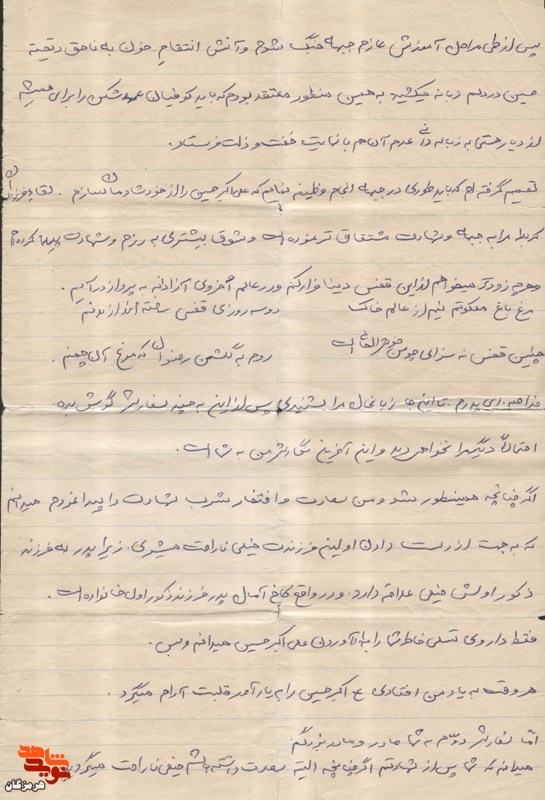 پس از طی مراحل آموزش عازم جبهه جنگ شوم و آتش انتقام خون به ناحق ریخته
حسین در دلم زبانه میکشید به همین منظور معتقد بودم که باید کوفیان عهد شکن را برای همیشه
از دیار هستی به زباله دانی عدم آن هم با نهایت خفت و ذلت فرستاد.
تصمیم گرفته ام که باید طوری در جبهه انجام وظیفه نمایم که علی اکبر حسین را از خود شادمان سازم. لقاء فرزندان
کربلا مرا به جبهه و شهادت مشتاق تر نموده است و شوق بیشتری به رزم و شهادت پیدا کرده ام
هرچه زودتر میخواهم از این قفس دنیا فرار کنم و در عالم اخروی آزادانه به پرواز درآیم.
مرغ باغ ملکوتم نیم از عالم خاک دو سه روزی قفس ساخته اند از بدنم
چنین قفس نه سزای چو من خوش الحانی است روم به گلشن رضوان که مرغ آن چمنم.
خداحافظ ای پدرم. تا اینجا زبانحال مرا شنیدی پس از این به چند سفارش گوش بده.
احتمالاً دیگر مرا نخواهی دید و این آخرین نگارش من به شما است.
اگر چنانچه همینطور شد و من سعادت و افتخار شرب شهادت را پیدا نمودم میدانم
که به جهت از دست دادن اولین فرزندت خیلی ناراحت میشوی. زیرا پدر به فرزند
ذکور اولش خیلی علاقه دارد. و در واقع کاخ آمال پدر فرزند ذکور اول خانواده است.
فقط داروی تسلی خاطر شما را به یاد آوردن علی اکبر حسین میدانم و بس.
هر وقت به یاد من افتادی علی اکبر حسین را به یاد آور قلبت آرام میگیرد.
امّا سفارش دوّم به شما مادر و مادر بزرگم
میدانم که شما پس از شهادتم اگر چنانچه البته سعادت داشته باشم خیلی ناراحت میگردید
نوید شاهد
هرمزگان